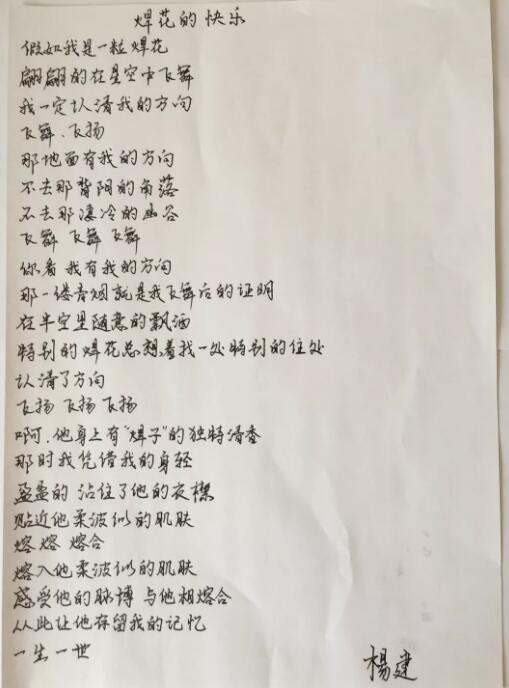 焊花的快乐
假如我是一粒焊花
翩翩的在星空中飞舞
我一定认清我的方向
飞舞.飞扬
那地面有我的方向
不去那背阳的角落
不去那凄冷的幽谷
飞舞 飞舞 飞舞
你看 我有我的方向
那一缕青烟就是我飞舞后的证明
在半空里随意的飘洒
特别的焊花总想着找一处特别的住处
认清了方向
飞扬 飞扬 飞扬
啊.他身上有“焊子”的独特清香
那时我凭借我的身轻
盈盈的 沾住了他的衣襟
贴近他柔波似的肌肤
熔 熔 熔合
熔入他柔波似的肌肤
感受他的脉博 与他相熔合
从此让他存留我的记忆
一生一世
楊建